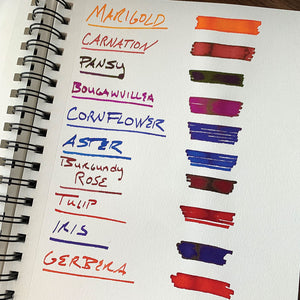 MARIGOLD
CARNATION
PANSY
BOUGAINVILLEA
CORNFLOWER
ASTER
BURGUNDY
ROSE
TULIP
IRIS
GERBERA